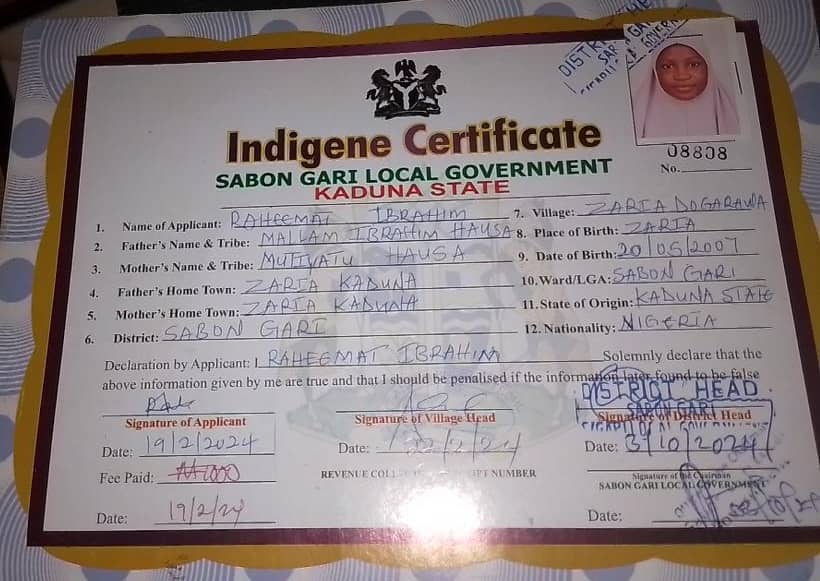 Indigene Certificate
SABON GARI LOCAL GOVERNMENT
KADUNA STATE
08808
No.
1. Name of Applicant: RAHEEMAT IBRAHIM
2. Father's Name & Tribe: MALLAM IBRAHIM HAUSA
3. Mother's Name & Tribe: MUTIYATU HAUSA
4. Father's Home Town: ZARIA KADUNA
5. Mother's Home Town: ZARIA KADUNA
6. District: SABON GARI
7. Village: ZARIA DOGARAWA
8. Place of Birth: ZARIA
9. Date of Birth: 20/05/2007
10. Ward/LGA: SABON GARI
11. State of Origin: KADUNA STATE
12. Nationality: NIGERIA
Declaration by Applicant: I RAHEEMAT IBRAHIM Solemnly declare that the
above information given by me are true and that I should be penalised if the information later found to be false
DISTRICT HEAD
SABON GARI
Signature of Applicant
Signature of Village Head
Signature of District Head
Date: 19/2/2024
Date: 22/2/24
Date: 3/10/2024
Fee Paid: ₦1000
REVENUE NUMBER
Signature of the Chairman
SABON GARI LOCAL GOVERNMENT
Date: 19/2/24
Date: